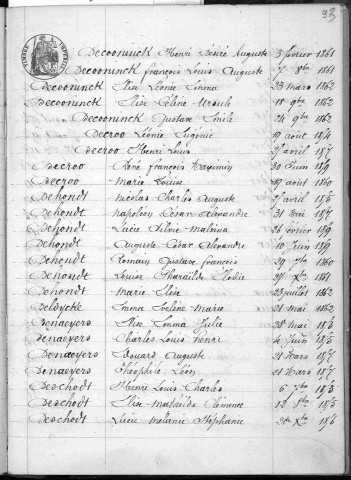 33
Decooninck Henri Désiré Auguste 3 février 1861
Decooninck françois Louis Auguste 7 8bre 1861
Decooninck Elise Léonie 23 mars 1862
Decooninck Elise Céline Ursule 18 9bre 1862
Decooninck Gustave Emile 24 9bre 1862
Decroo Léonie Eugénie 19 août 1854
Decroo Henri Louis avril 1857
Decroo René françois 30 Juin 1859
Decroo Marie Louise 19 août 1860
Dehondt Nicolas Charles Auguste avril 1855
Dehondt Napoléon César Alexandre 31 Mai 1857
Dehondt Lucie Silvie Malvina 26 février 1859
Dehondt Auguste César Alexandre 10 Juin 1859
Dehondt Romain Gustave françois 29 7bre 1860
Dehondt Louise Elodie 27 Xbre 1861
Dehondt Marie Elise 23 juillet 1862
Deldycke Emma Eveline Marie 21 mai 1862
Denaeyers Elise Emma Julie 28 mai 1853
Denaeyers Charles Louis Henri 4 Juin 1855
Denaeyers Edouard Auguste 21 Mars 1857
Denaeyers Théophile Léon 21 Mars 1857
Deschodt Henri Louis Charles 1853
Deschodt Elise Mathilde Clémence 12 8bre 1855
Deschodt Lucie Mélanie Stéphanie Xbre 1856